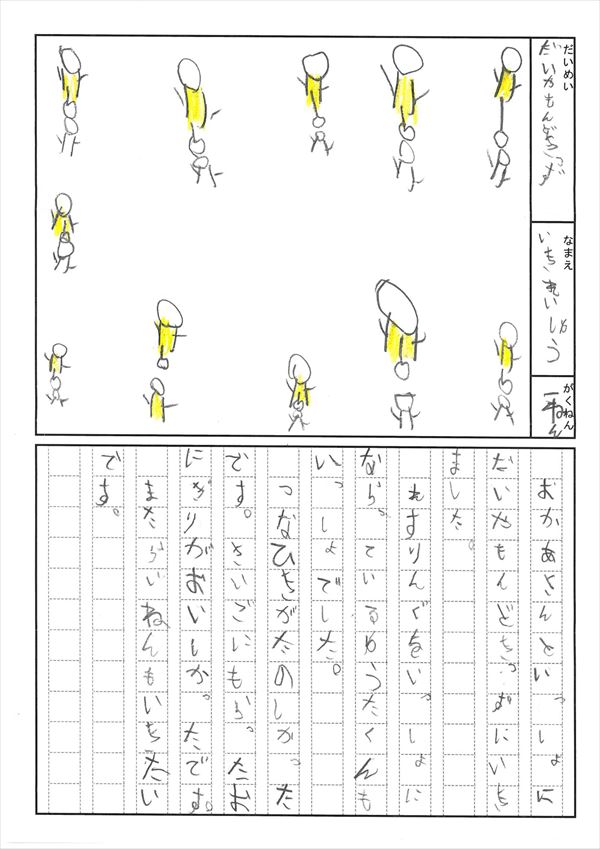 だいめい
だいやもんどきっず
なまえ
いちき れいしゅう
がくねん
一ねん
おかあさんといっしょに
だいやもんどきっずにいき
ました。
れすりんぐをいっしょに
ならっているゆうたくんも
いっしょでした。
つなひきがたのしかった
です。さいごにもらったお
にぎりがおいしかったです。
またらいねんもいきたい
です。